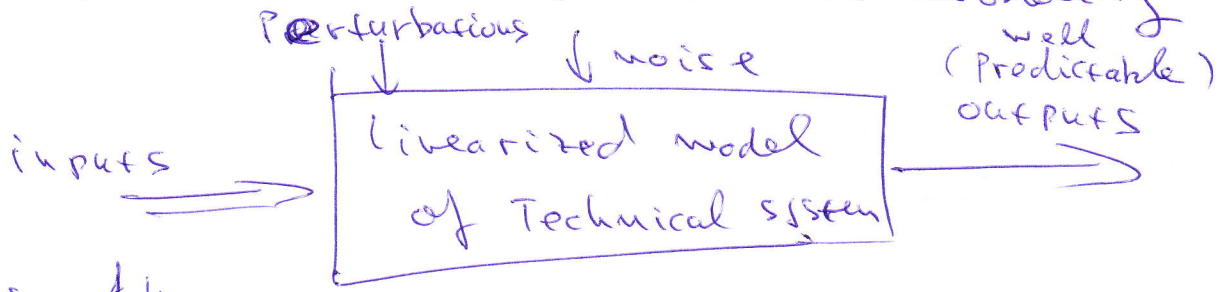 Perturbations
noise
well
(Predictable)
outputs
inputs
linearized model
of Technical system